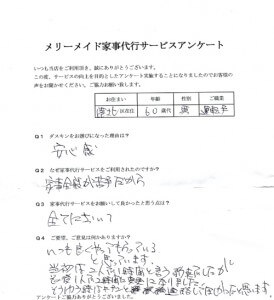 メリーメイド家事代行サービスアンケート
いつも当店をご利用頂き、誠にありがとうございます。
この度、サービスの向上を目的としたアンケート実施することになりましたのでお客様の
声をお聞かせください。ご協力お願い致します。
お住まい 年齢 性別 ご職業
区在住 60歳代 男
Q1 ダスキンをお選びになった理由は?
安心感
Q2 なぜ家事代行サービスをご利用されたのですか?
家事全般が苦手だから
Q3 家事代行サービスをお願いして良かったと思う点は?
全てにおいて
Q4 ご要望、ご意見は何かありますか?
いつも良くやってもらっている
と思っています。
当初は二人で2時間と言う約束でしたが
アンケートご協力ありがとうございました。